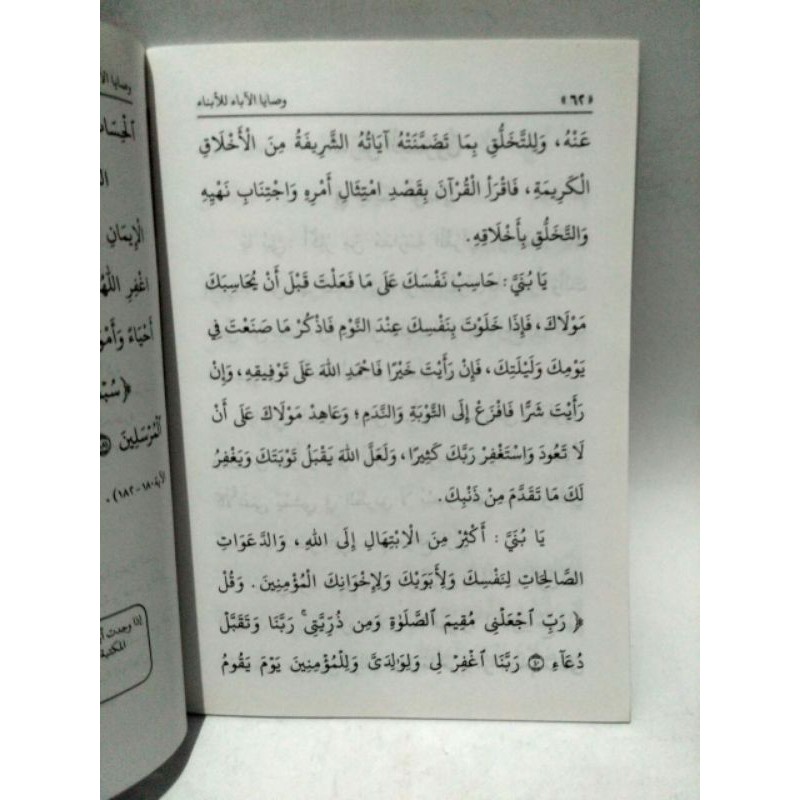 ﴿٦٢﴾ وصايا الآباء للأبناء
عَنْهُ، وَلِلتَّخَلُّقِ بِمَا تَضَمَّنَتْهُ آيَاتُهُ الشَّرِيفَةُ مِنَ الْأَخْلَاقِ
الْكَرِيمَةِ، فَاقْرَأِ الْقُرْآنَ بِقَصْدِ امْتِثَالِ أَمْرِهِ وَاجْتِنَابِ نَهْيِهِ
وَالتَّخَلُّقِ بِأَخْلَاقِهِ.
يَا بُنَيَّ: حَاسِبْ نَفْسَكَ عَلَى مَا فَعَلْتَ قَبْلَ أَنْ يُحَاسِبَكَ
مَوْلَاكَ، فَإِذَا خَلَوْتَ بِنَفْسِكَ عِنْدَ النَّوْمِ فَاذْكُرْ مَا صَنَعْتَ فِي
يَوْمِكَ وَلَيْلَتِكَ، فَإِنْ رَأَيْتَ خَيْرًا فَاحْمَدِ اللهَ عَلَى تَوْفِيقِهِ، وَإِنْ
رَأَيْتَ شَرًّا فَافْزَعْ إِلَى التَّوْبَةِ وَالنَّدَمِ؛ وَعَاهِدْ مَوْلَاكَ عَلَى أَنْ
لَا تَعُودَ وَاسْتَغْفِرْ رَبَّكَ كَثِيرًا، وَلَعَلَّ اللهَ يَقْبَلُ تَوْبَتَكَ وَيَغْفِرُ
لَكَ مَا تَقَدَّمَ مِنْ ذَنْبِكَ.
يَا بُنَيَّ: أَكْثِرْ مِنَ الْابْتِهَالِ إِلَى اللهِ، وَالدَّعَوَاتِ
الصَّالِحَاتِ لِنَفْسِكَ وَلِأَبَوَيْكَ وَلِإِخْوَانِكَ الْمُؤْمِنِينَ. وَقُلْ
﴿رَبِّ ٱجْعَلْنِى مُقِيمَ ٱلصَّلَوٰةِ وَمِن ذُرِّيَّتِى ۚ رَبَّنَا وَتَقَبَّلْ
دُعَآءِ ۝٤٠ رَبَّنَا ٱغْفِرْ لِى وَلِوَٰلِدَىَّ وَلِلْمُؤْمِنِينَ يَوْمَ يَقُومُ
وصايا
الْإِيمَانِ
اغْفِرِ
أَحْيَاءً
الْمُرْسَلِينَ
١٨٠-١٨٢).
إذا وجدت
المكتبة